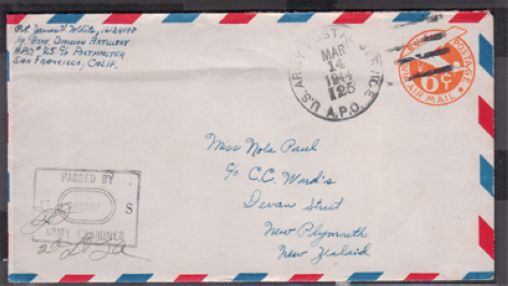 Pvt. James V. White,
Hq. Btry. Division Artillery
A.P.O. #25 c/o Postmaster
San Francisco, Calif.
U.S. ARMY POSTAL SERVICE
MAR
14
1944
125
A.P.O.
POSTAGE
6¢
VIA AIR MAIL
Miss Nola Paul
c/o C.C. Ward's
Devon Street
New Plymouth
New Zealand
PASSED BY
S
ARMY EXAMINER